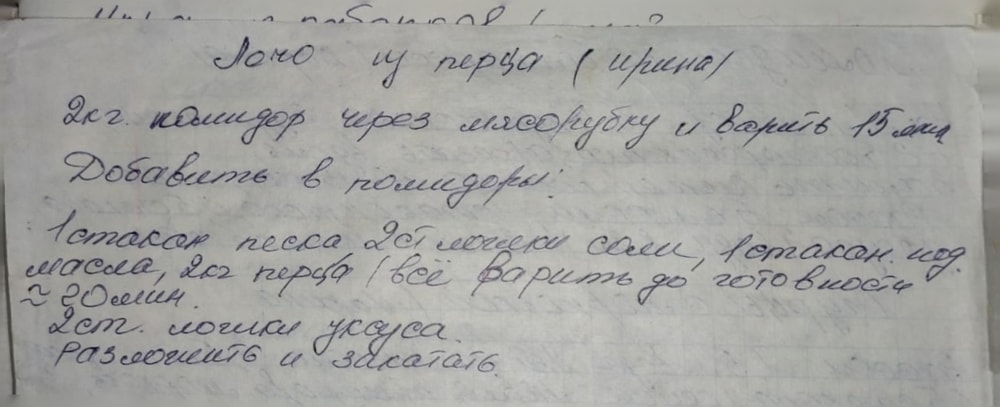 Лечо из перца (Ирина)
2кг. помидор через мясорубку и варить 15 мин
Добавить в помидоры:
1 стакан песка 2 ст ложки соли, 1 стакан под.
масла, 2 кг перца (всё варить до готовности
≈ 20 мин.
2 ст. ложки уксуса.
Разложить и закатать.